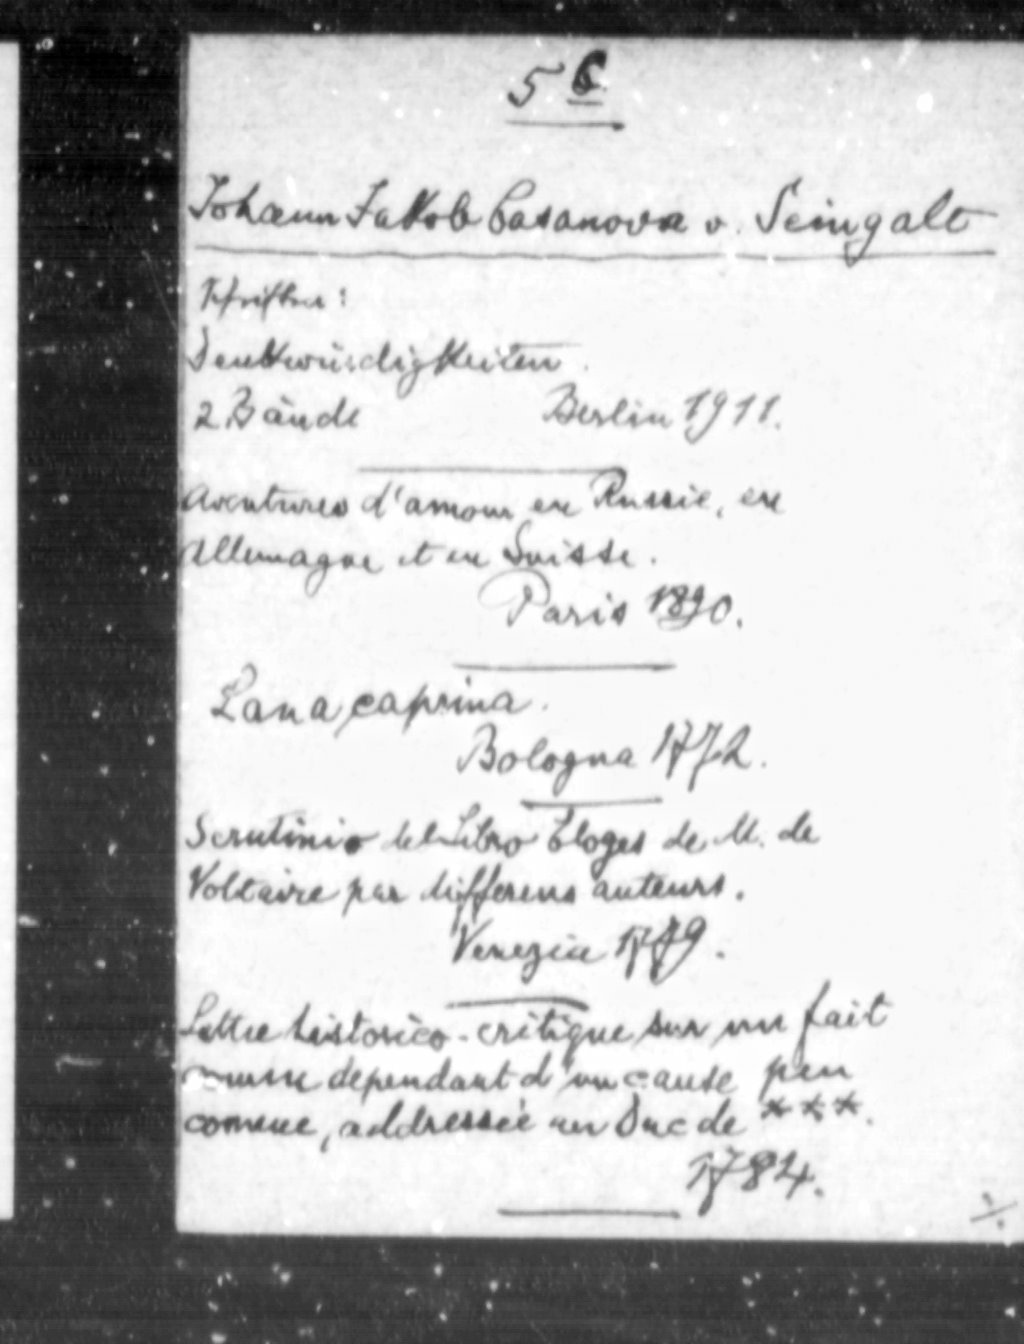 5 6
Johann Jakob Casanova v. Seingalt
Schriften:
Denkwürdigkeiten.
2 Bände Berlin 1911.
Aventures d'amour en Russie, en
Allemagne et en Suisse.
Paris 1890.
Lana caprina.
Bologna 1772.
Scrutinio del Libro Eloges de M. de
Voltaire par differens auteurs.
Venezia 1779.
Lettre historico-critique sur un fait
dependant d'un cause peu
connue, addressée un Duc de ***.
1784.